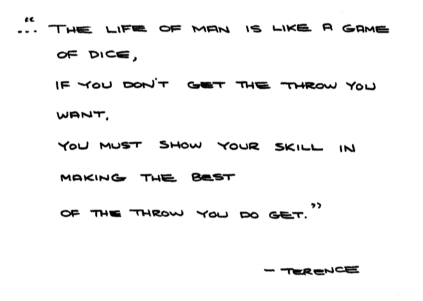 “... THE LIFE OF MAN IS LIKE A GAME
OF DICE,
IF YOU DON'T GET THE THROW YOU
WANT,
YOU MUST SHOW YOUR SKILL IN
MAKING THE BEST
OF THE THROW YOU DO GET.”
– TERENCE